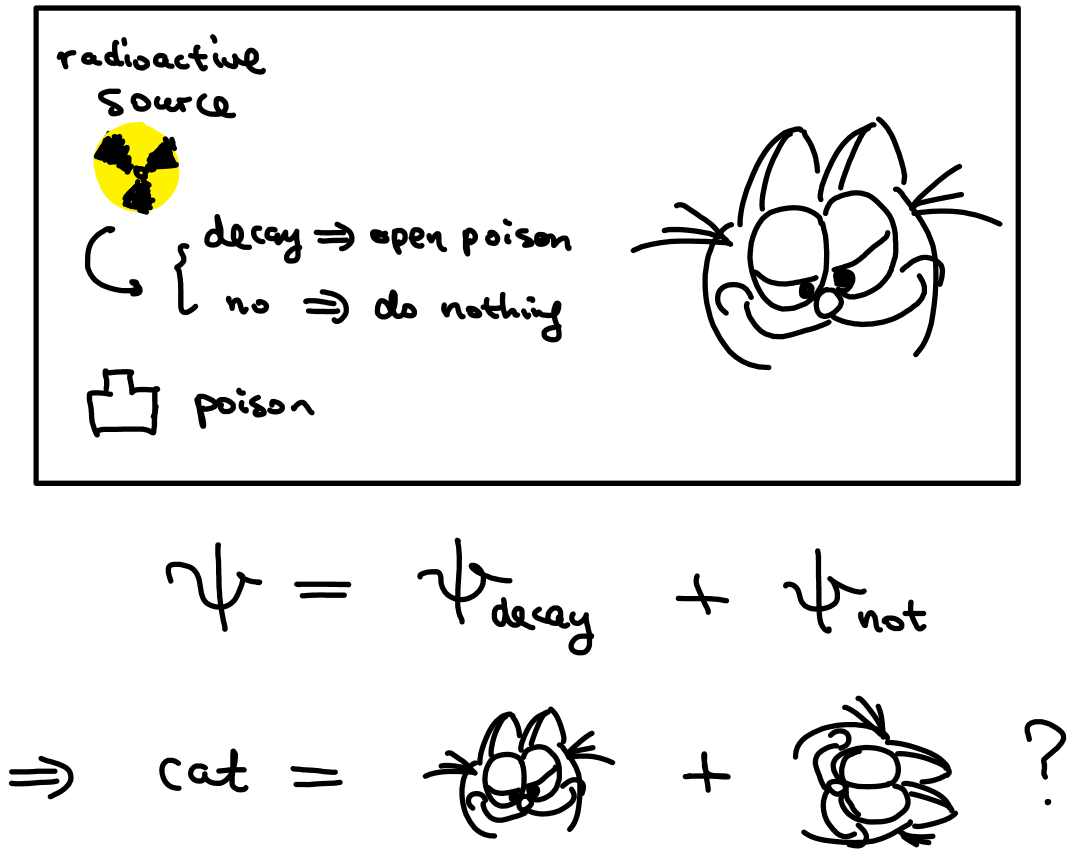 radioactive
source
decay ⇒ open poison
no ⇒ do nothing
poison
ψ = ψdecay + ψnot
⇒ cat = + ?